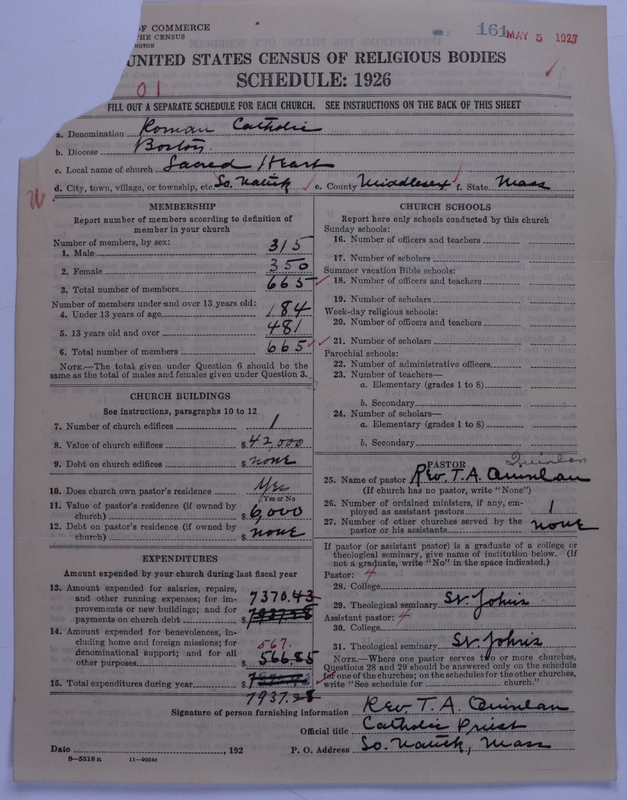 OF COMMERCE
THE CENSUS
161 MAY 5 1927
UNITED STATES CENSUS OF RELIGIOUS BODIES
SCHEDULE: 1926
01
FILL OUT A SEPARATE SCHEDULE FOR EACH CHURCH. SEE INSTRUCTIONS ON THE BACK OF THIS SHEET
a. Denomination Roman Catholic
b. Diocese Boston
c. Local name of church Sacred Heart
d. City, town, village, or township, etc. So. Natick e. County Middlesex f. State Mass
MEMBERSHIP
Report number of members according to definition of
member in your church
Number of members, by sex:
1. Male 315
2. Female 350
3. Total number of members 665
Number of members under and over 13 years old:
4. Under 13 years of age 184
5. 13 years old and over 481
6. Total number of members 665
NOTE.—The total given under Question 6 should be
same as the total of males and females given under Question 3.
CHURCH BUILDINGS
See instructions, paragraphs 10 to 12
7. Number of church edifices 1
8. Value of church edifices $42,000
9. Debt on church edifices $none
10. Does church own pastor's residence Yes
(Yes or No
11. Value of pastor's residence (if owned by
church) $6,000
12. Debt on pastor's residence (if owned by
church) $none
EXPENDITURES
Amount expended by your church during last fiscal year
13. Amount expended for salaries, repairs,
and other running expenses; for im- 7370.43
provements or new buildings; and for
payments on church debt $
14. Amount expended for benevolences, in-
cluding home and foreign missions; for 567.
denominational support; and for all
other purposes $566.85
15. Total expenditures during year $
7937.28
CHURCH SCHOOLS
Report here only schools conducted by this church
Sunday schools:
16. Number of officers and teachers
17. Number of scholars
Summer vacation Bible schools:
18. Number of officers and teachers
19. Number of scholars
Week-day religious schools:
20. Number of officers and teachers
21. Number of scholars
Parochial schools:
22. Number of administrative officers
23. Number of teachers—
a. Elementary (grades 1 to 8)
b. Secondary
24. Number of scholars—
a. Elementary (grades 1 to 8)
b. Secondary
PASTOR Quinlan
25. Name of pastor Rev. T. A. Quinlan
(If church has no pastor, write "None")
26. Number of ordained ministers, if any, em-
ployed as assistant pastors 1
27. Number of other churches served by the
pastor or his assistants none
If pastor (or assistant pastor) is a graduate of a college or
theological seminary, give name of institution below. (If
not a graduate, write "No" in the space indicated.)
Pastor: 4
28. College
29. Theological seminary St. Johns
Assistant pastor: 4
30. College
31. Theological seminary St. Johns
NOTE.—Where one pastor serves two or more churches,
Questions 28 and 29 should be answered only on the schedule
for one of the churches; on the schedules for the other churches,
write "See schedule for church."
Signature of person furnishing information Rev. T. A. Quinlan
Official title Catholic Priest
Date , 192 P. O. Address So. Natick, Mass
8—5518 a 11—9054a